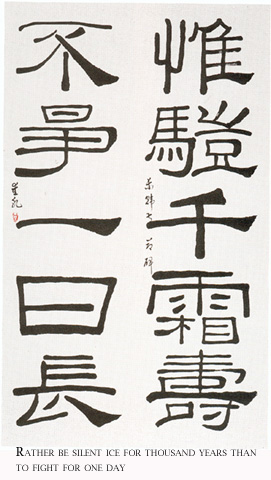 惟 千霜壽
不爭一日長
RATHER BE SILENT ICE FOR THOUSAND YEARS THAN
TO FIGHT FOR ONE DAY